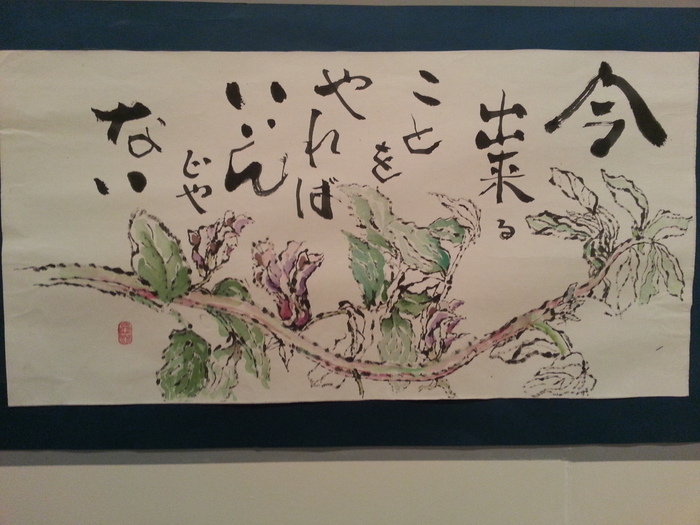 今
出来る
ことを
やれば
いいん
じや
ない